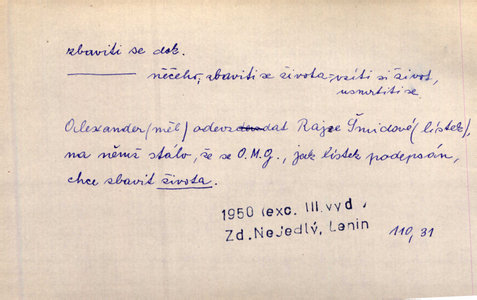 zbaviti se dok.
něčeho; zbaviti se života = vzíti si život,
usmrtiti se.
Alexander (měl) odevzdat Rajce Šmidové (lístek),
na němž stálo, že se O. M. G., jak lístek podepsán,
chce zbavit života.
1950 (exc. III. vyd.)
Zd. Nejedlý, Lenin 110, 31